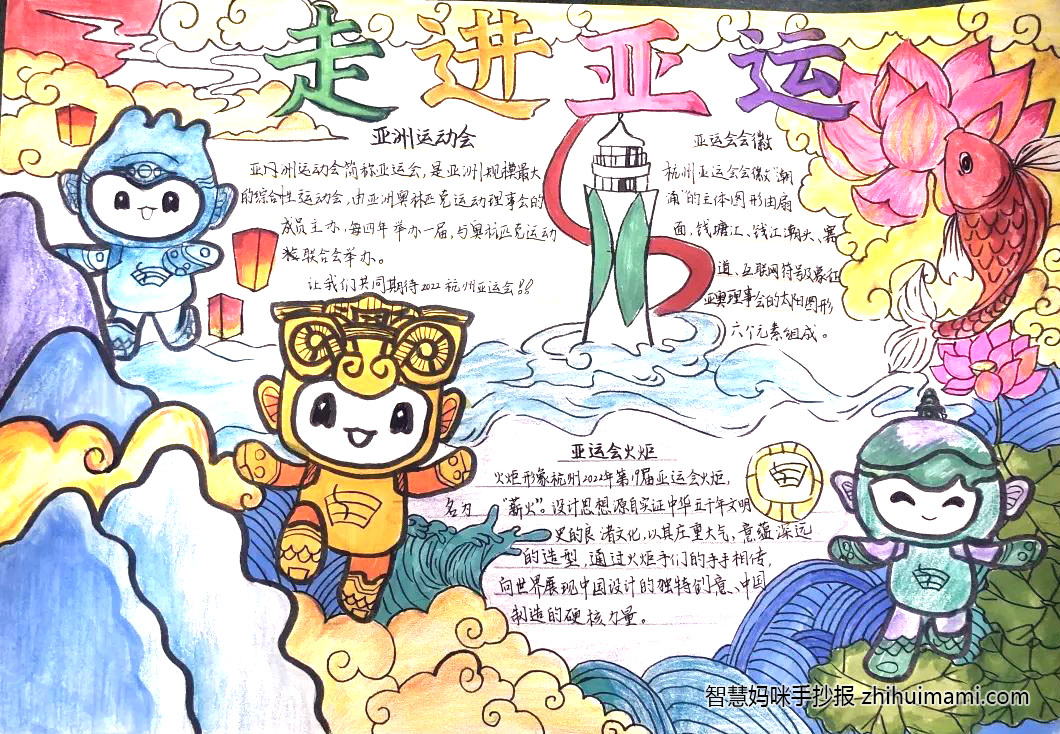 走进亚运
亚洲运动会
亚洲运动会简称亚运会,是亚洲规模最大
的综合性运动会,由亚洲奥林匹克运动理事会的
成员主办,每四年举办一届,与奥林匹克运动
联合会举办。
让我们共同期待2022杭州亚运会!!
亚运会会徽
杭州亚运会会徽“潮
涌”的主体图形由扇
面,钱塘江、钱江潮头、赛
道、互联网符号及象征
亚奥理事会的太阳图形
六个元素组成。
亚运会火炬
火炬形象杭州2022年第19届亚运会火炬,
名为“薪火”。设计思想源自实证中华五千年文明
史的良渚文化,以其庄重大气、意蕴深远
的造型,通过火炬手们的手手相传,
向世界展现中国设计的独特创意、中国
制造的硬核力量。
智慧妈咪手抄报 zhihuimami.com